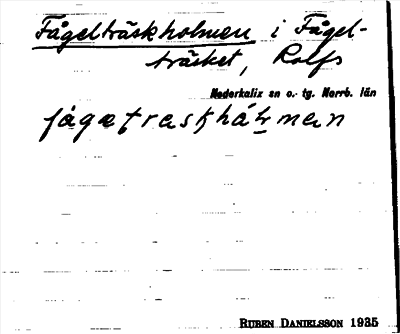 Fågelträskholmen i Fågel-
träsket, Rolfs
Nederkalix sn o. tg. Norrb. län
fágætraskhálmen
RUBEN DANIELSSON 1935